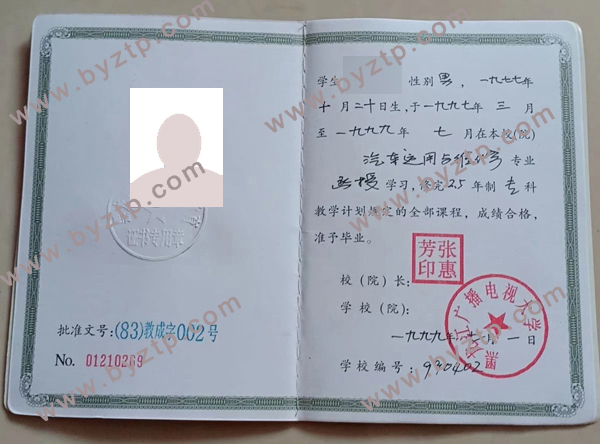 证书专用章
批准文号:(83)教成字002号
No. 01210269
学生 性别男,一九七七年
十月二十日生,于一九九七年三月
至一九九九年七月在本校(院)
汽车运用与维修专业
函授学习,修完2.5年制专科
教学计划规定的全部课程,成绩合格,
准予毕业。
校(院)长:
张惠芳印
学校(院):
江广播电视大学
一九九九年七月一日
学校编号:930402
www.byztp.com
www.byztp.com
www.byztp.com
www.byztp.com